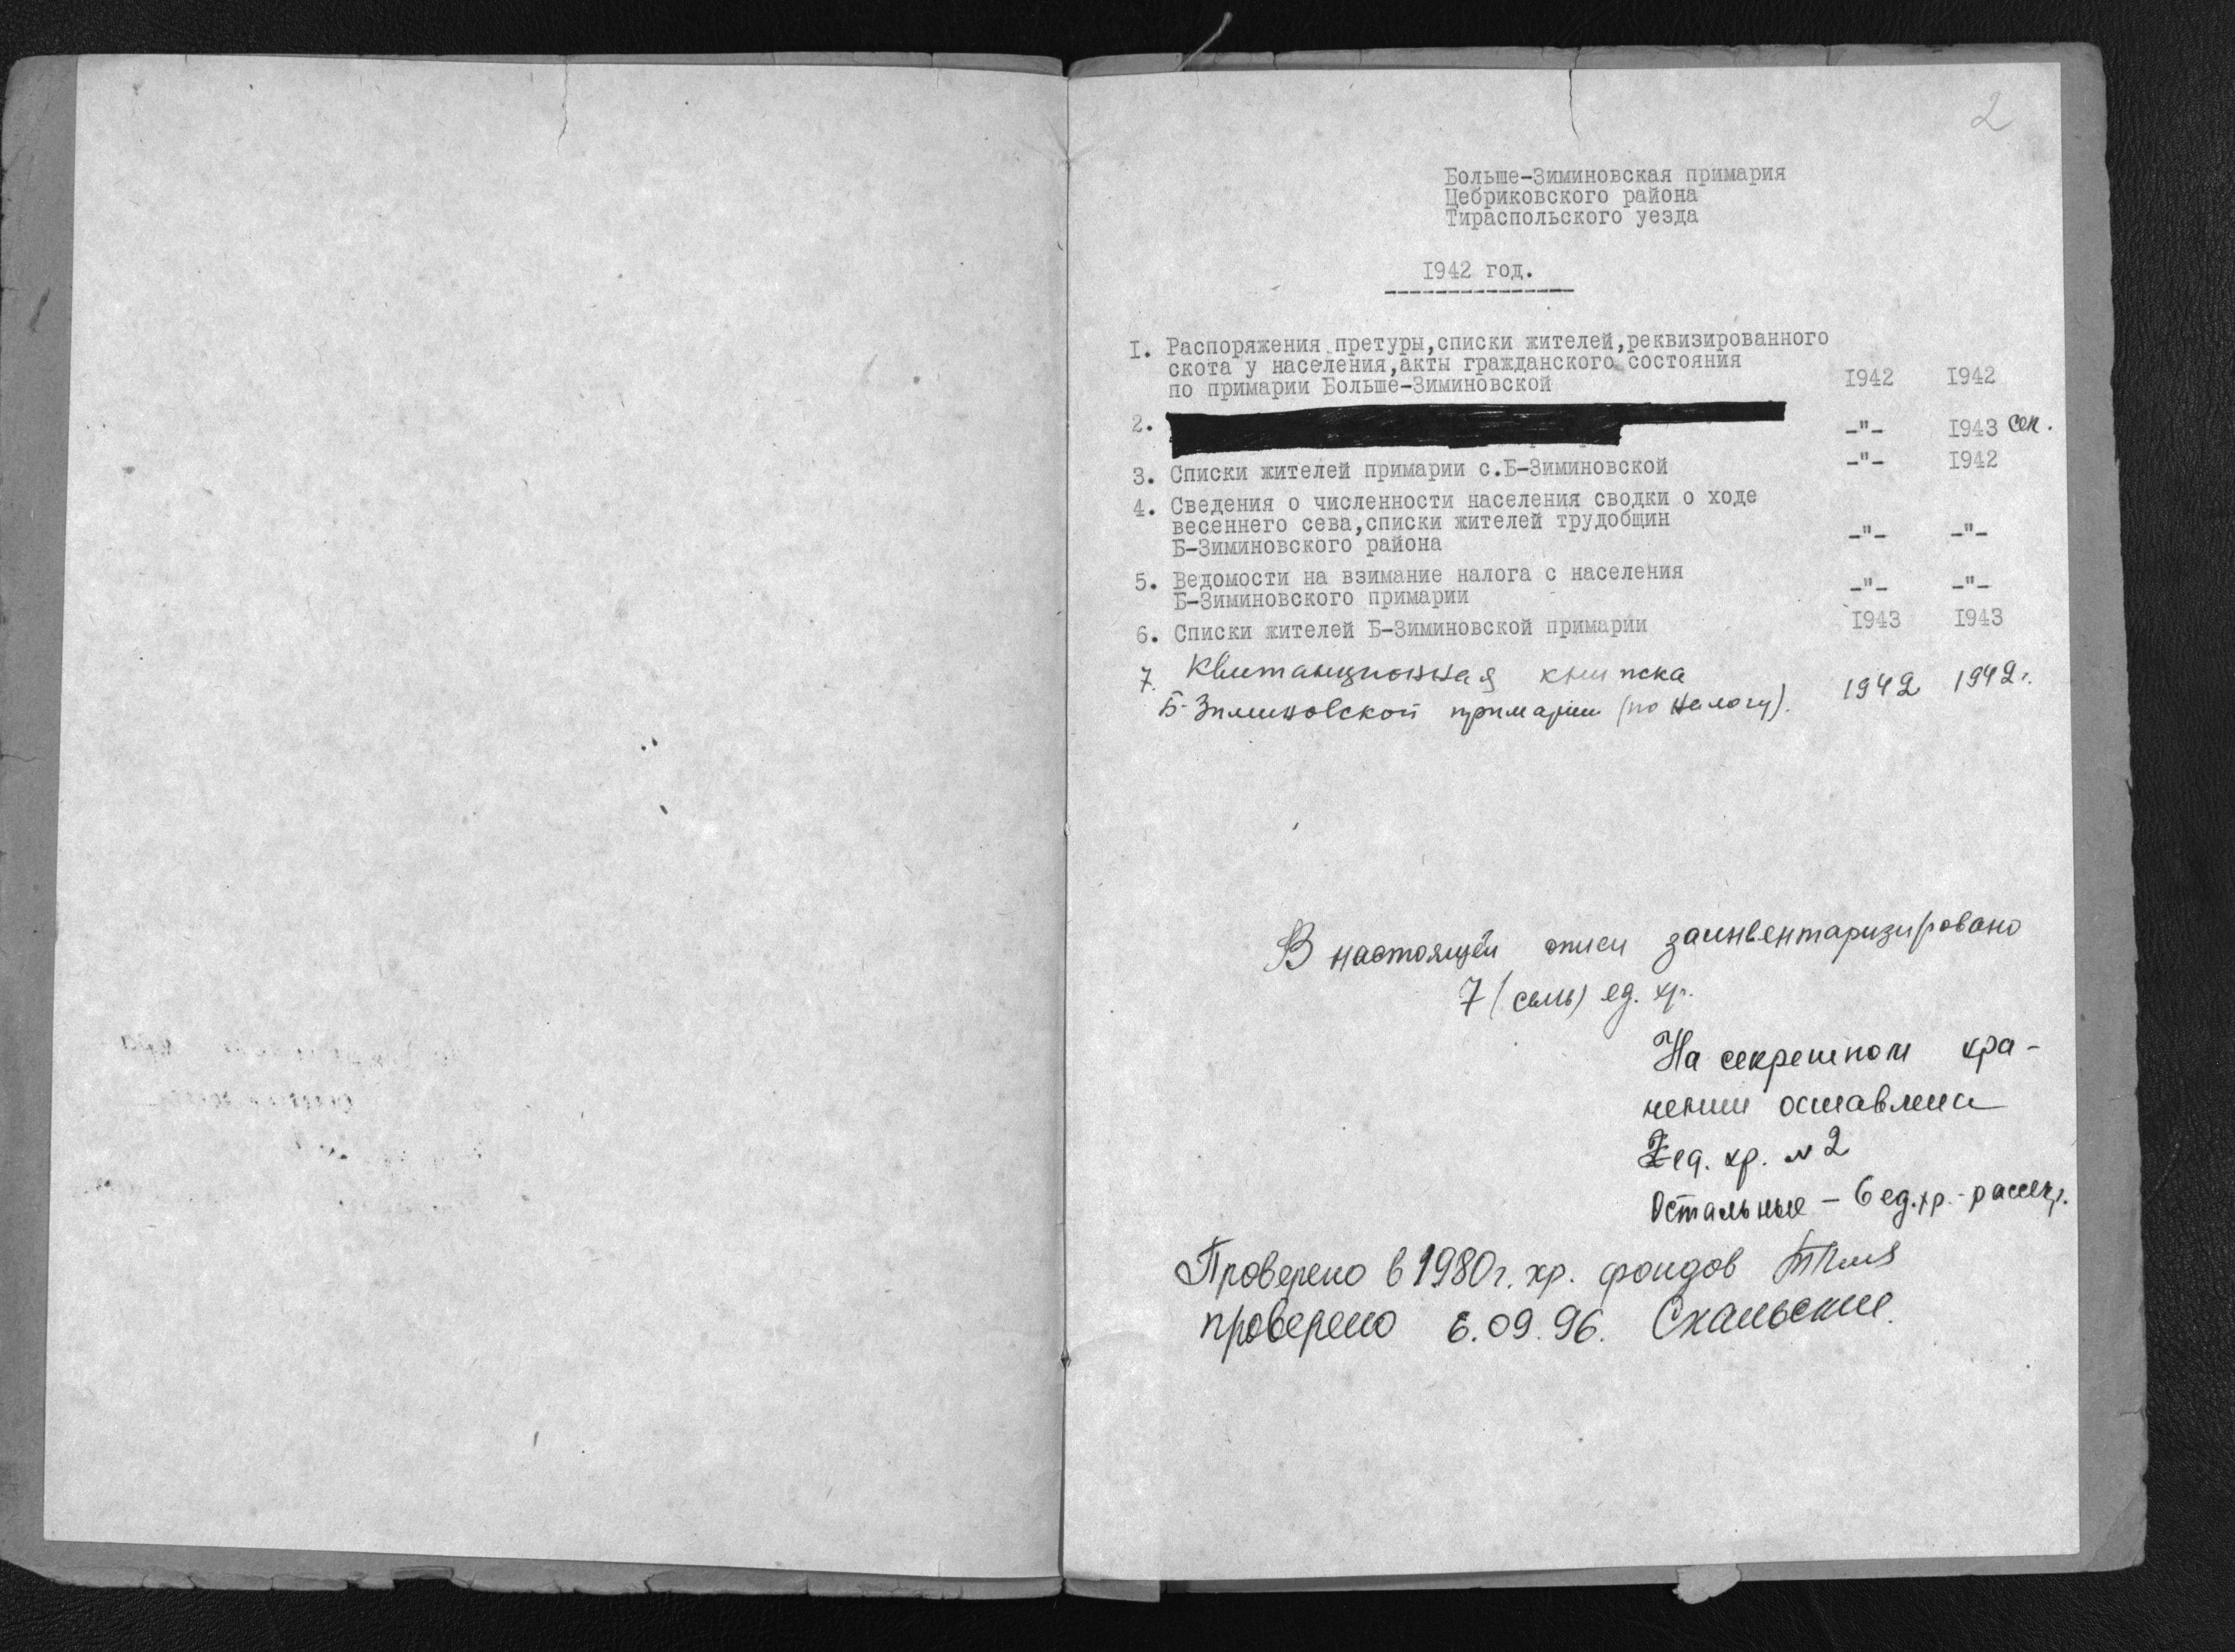 2
Больше-Зиминовская примария
Цебриковского района
Тираспольского уезда
I942 год.
I. Распоряжения претуры,списки жителей,реквизированного
скота у населения,акты гражданского состояния
по примарии Больше-Зиминовской I942 I942
2. -"- I943 сек.
3. Списки жителей примарии с.Б-Зиминовской -"- I942
4. Сведения о численности населения сводки о ходе
весеннего сева,списки жителей трудобщин
Б-Зиминовского района -"- -"-
5. Ведомости на взимание налога с населения
Б-Зиминовского примарии -"- -"-
6. Списки жителей Б-Зиминовской примарии I943 I943
7. Квитанционная книжка
Б-Зиминовской примарии (по налогу). 1942 1942г.
В настоящей описи заинвентаризировано
7 (семь) ед. хр.
На секретном хра-
нении оставлена
ед. хр. № 2
Остальные - 6 ед.хр. - рассекр.
Проверено в 1980г. хр. фондов
проверено 6.09.96.